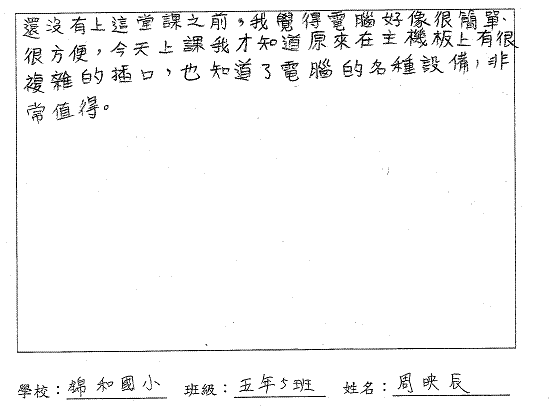 還沒有上這堂課之前,我覺得電腦好像很簡單、
很方便,今天上課我才知道原來在主機板上有很
複雜的插口,也知道了電腦的各種設備,非
常值得。
學校:錦和國小 班級:五年5班 姓名:周映辰